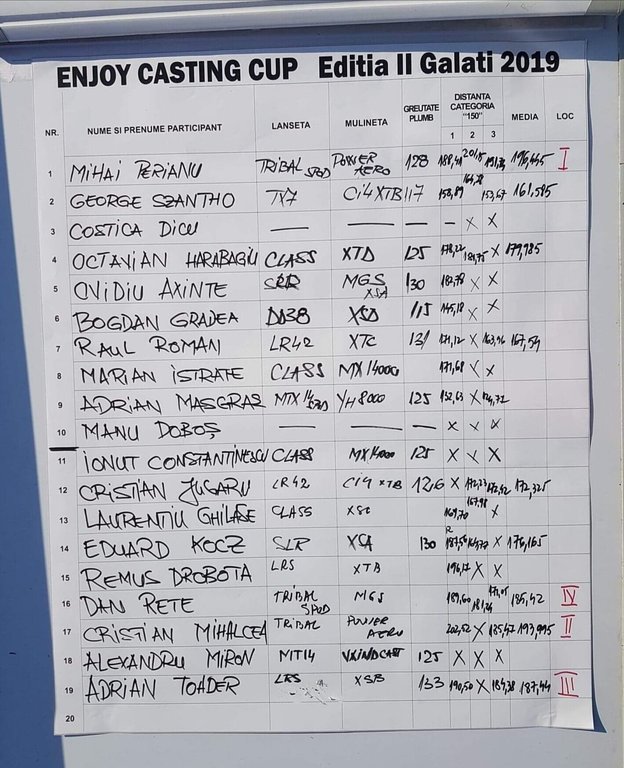 ENJOY CASTING CUP Editia II Galati 2019
NR. NUME SI PRENUME PARTICIPANT LANSETA MULINETA GREUTATE PLUMB DISTANTA CATEGORIA "150" 1 2 3 MEDIA LOC
1 MIHAI PERIANU TRIBAL SPOD POWER AERO 128 196,445 I
2 GEORGE SZANTHO TX7 Ci4 XTB 117 153,89 153,67 161,585
3 COSTICA DICU — — — – X X
4 OCTAVIAN HARABAGIU CLASS XTD 125 178,22 181,75 X 179,985
5 OVIDIU AXINTE SRR MGS XSA 130 182,78 X X
6 BOGDAN GRADEA DD38 115 145,18 X X
7 RAUL ROMAN LR42 XTC 131 171,12 X 163,96 167,54
8 MARIAN ISTRATE CLASS MX14000 171,68 X X
9 ADRIAN MASGRAS MTX14 SPOD YH8000 125 132,63 X
10 MANU DOBOȘ — — — X X X
11 IONUT CONSTANTINESCU CLASS MX14000 125 X X X
12 CRISTIAN JUGARU LR42 Ci4 XTB 126 X 172,23 172,42 172,325
13 LAURENTIU GHILASE CLASS 169,70 167,98 X
14 EDUARD KOCZ SLR 130 X 176,165
15 REMUS DROBOTA LRS XTB 196,17 X X
16 DAN RETE TRIBAL SPOD MGS 189,60 181,24 171,05 185,42 IV
17 CRISTIAN MIHALCEA TRIBAL POWER AERO 202,52 X 185,47 193,995 II
18 ALEXANDRU MIRON MT14 125 X X X
19 ADRIAN TOADER LRS XSB 133 190,50 X 184,38 187,44 III
20